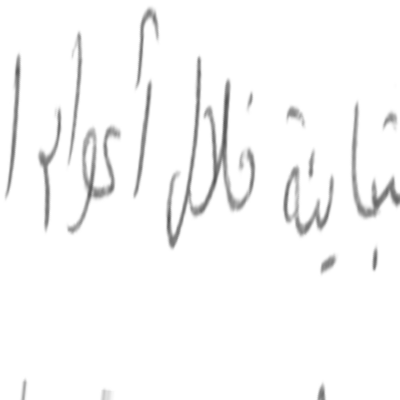 تباينة خلال أعوام ا